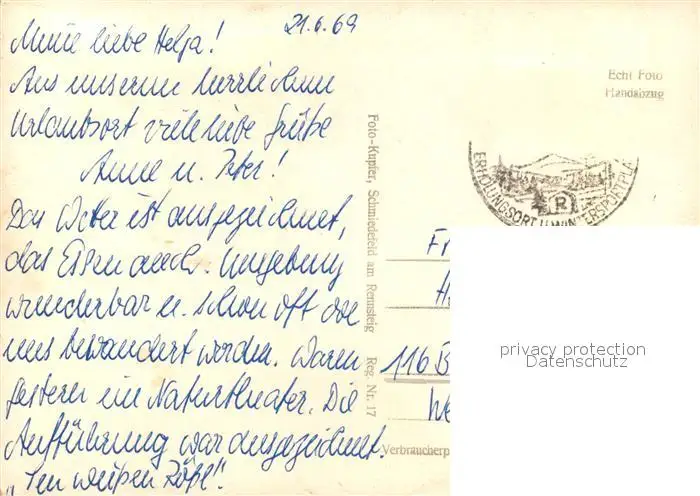 21.6.69
Meine liebe Helga!
Aus unserem herrlichen
Urlaubsort viele liebe Grüße
Anne u. Peter!
Das Wetter ist ausgezeichnet,
das Essen auch. Umgebung
wunderbar u. schon oft von
uns bewandert worden. Waren
gestern im Naturtheater. Die
Aufführung war ausgezeichnet.
"Im weißen Rößl".
Foto-Kupfer, Schmiedefeld am Rennsteig Reg. Nr. 17
Echt Foto
Handabzug
ERHOLUNGSORT U. WINTERSPORTPLA
R
Fr
H
116 B
We
Verbraucherp
privacy protection
Datenschutz